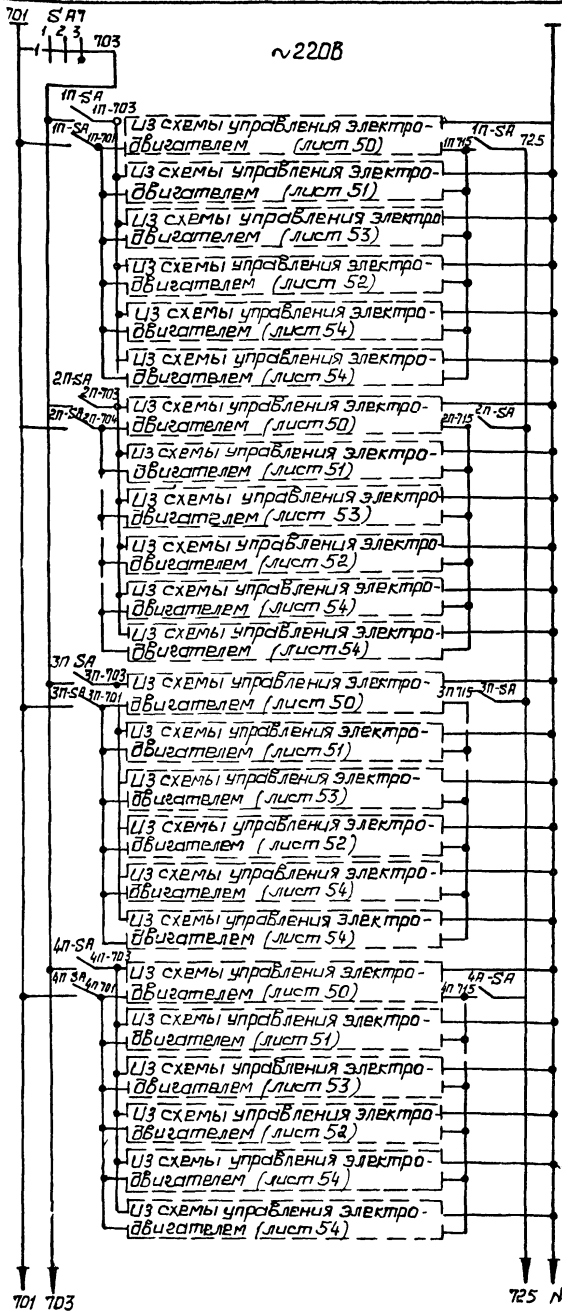 701 SA7
1 2 3 703
~220В
1П-SA 1П-703
1П-SA 1П-701
Из схемы управления электро-
двигателем (лист 50) 1П 715 1П-SA 725
Из схемы управления электро-
двигателем (лист 51)
Из схемы управления электро
двигателем (лист 53)
Из схемы управления электро-
двигателем (лист 52)
Из схемы управления электро-
двигателем (лист 54)
Из схемы управления электро-
двигателем (лист 54)
2П-SA 2П-703
2П-SA 2П-704
Из схемы управления электро-
двигателем (лист 50) 2П-715 2П-SA
Из схемы управления электро-
двигателем (лист 51)
Из схемы управления электро
двигателем (лист 53)
Из схемы управления электро
двигателем (лист 52)
Из схемы управления электро-
двигателем (лист 54)
Из схемы управления электро-
двигателем (лист 54)
3П SA 3П-703
3П-SA 3П-701
Из схемы управления электро-
двигателем (лист 50) 3П 715 3П-SA
Из схемы управления электро-
двигателем (лист 51)
Из схемы управления электро-
двигателем (лист 53)
Из схемы управления электро-
двигателем (лист 52)
Из схемы управления электро-
двигателем (лист 54)
Из схемы управления электро-
двигателем (лист 54)
4П-SA 4П-703
4П SA 4П 701
Из схемы управления электро-
двигателем (лист 50) 4П 715 4П-SA
Из схемы управления электро-
двигателем (лист 51)
Из схемы управления электро-
двигателем (лист 53)
Из схемы управления электро-
двигателем (лист 52)
Из схемы управления электро-
двигателем (лист 54)
Из схемы управления электро-
двигателем (лист 54)
701 703 725 N